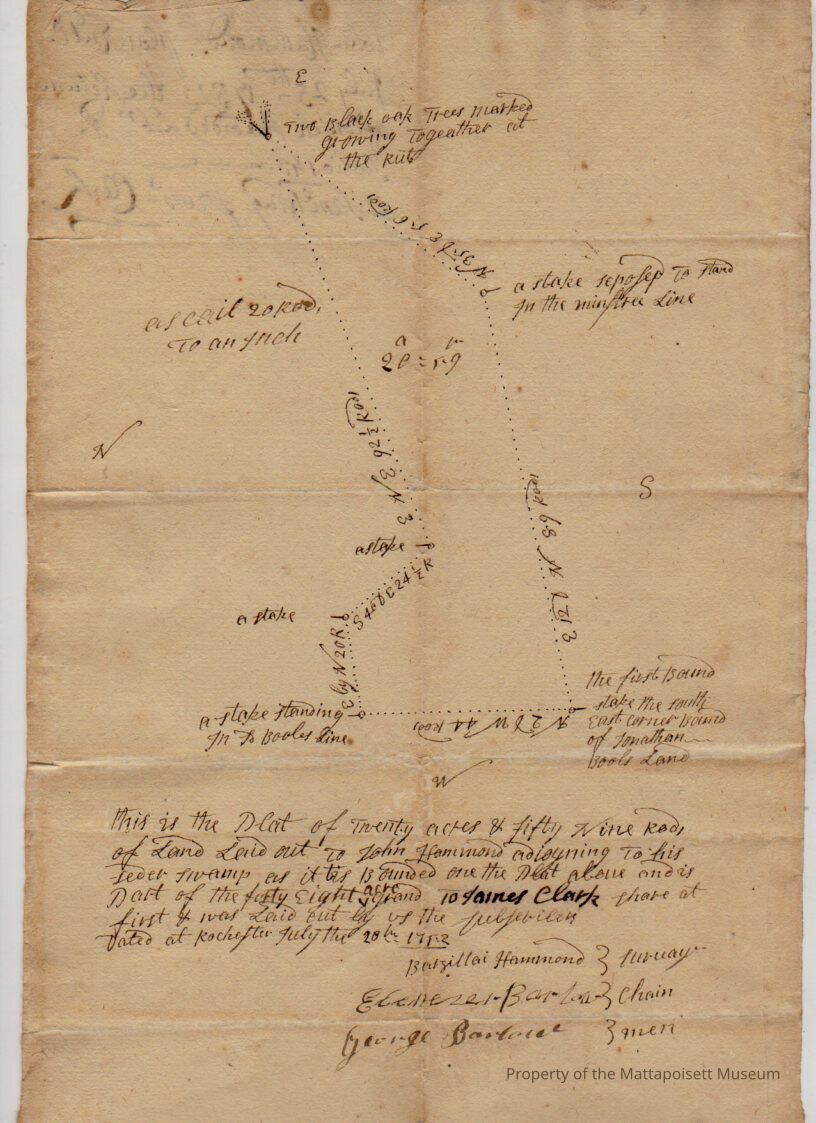 E
Two Black oak Trees marked
growing Togeather at
the
N 35 d E 56 Rods
a stake seposed To stand
In the Line
ascail 20 Rod,
To an Inch
a r
20 = 59
N
E N E 62 1/2 Rods
S
E 12 d N 89 Rods
a stake
S 40 D E 24 1/2 R
a stake
E by N 20 R
the first Bound
stake the south
East corner Bound
of Jonathan
Bools Land
a stake standing
In Bools Line
N 21 W 44 Rods
W
this is the Plat of Twenty acres & fifty Nine Rods
of Land Laid out To John Hammond adioyning To his
seder swamp as it is Bounded one the Plat aboue and is
Part of the Eight acre To James Clark share at
first & was Laid out by us the subscribers
Dated at Rochester July the 20th = 1752
Barzillai Hammond } suruayr
Ebenezer Barlow } Chain
George Barlowe } men
Property of the Mattapoisett Museum